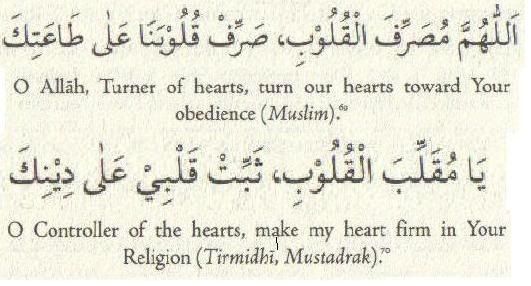 اَللّٰهُمَّ مُصَرِّفَ الْقُلُوْبِ، صَرِّفْ قُلُوْبَنَا عَلٰى طَاعَتِكَ
O Allāh, Turner of hearts, turn our hearts toward Your
obedience (Muslim).⁶⁹
يَا مُقَلِّبَ الْقُلُوْبِ، ثَبِّتْ قَلْبِيْ عَلٰى دِيْنِكَ
O Controller of the hearts, make my heart firm in Your
Religion (Tirmidhī, Mustadrak).⁷⁰